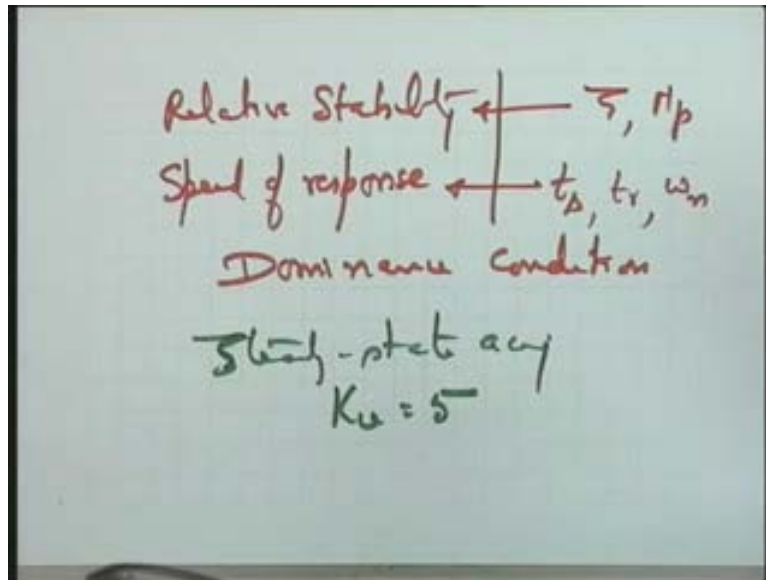 Relative Stability ← ζ, Mp
Speed of response ← ts, tr, ωn
Dominance Condition
Steady-state accy
Kv = 5